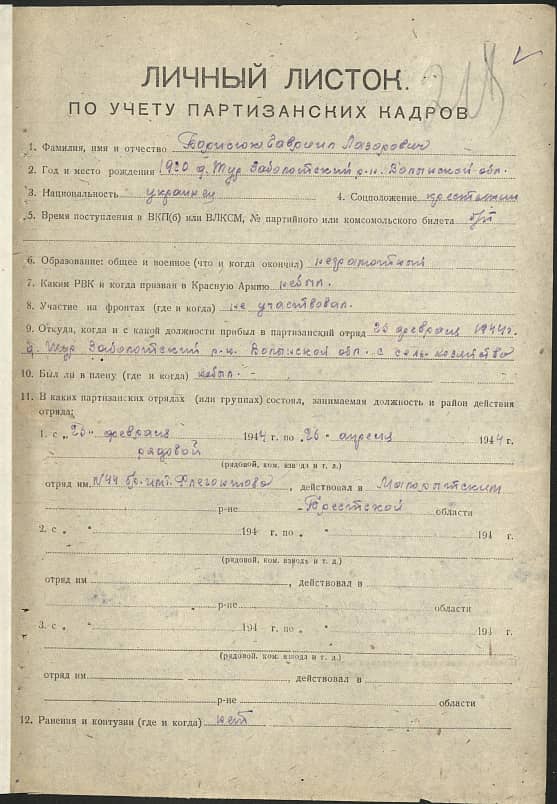 ЛИЧНЫЙ ЛИСТОК
ПО УЧЕТУ ПАРТИЗАНСКИХ КАДРОВ
1. Фамилия, имя и отчество Борисюк Гавриил Лазарович
2. Год и место рождения 1920 д. Тур Заболотский р-н. Волынской обл.
3. Национальность украинец 4. Соцположение крестьянин
5. Время поступления в ВКП(б) или ВЛКСМ, № партийного или комсомольского билета б/п
6. Образование: общее и военное (что и когда окончил) неграмотный
7. Каким РВК и когда призван в Красную Армию не был.
8. Участие на фронтах (где и когда) не участвовал.
9. Откуда, когда и с какой должности прибыл в партизанский отряд 26 февраля 1944г.
д. Тур Заболотский р-н. Волынской обл. с сель. хозяйства
10. Был ли в плену (где и когда) не был. -
11. В каких партизанских отрядах (или группах) состоял, занимаемая должность и район действия
отряда:
1. с „26" февраля 1944 г. по „26" апреля 1944 г.
рядовой
(рядовой, ком. взвода и т. д.)
отряд им. №44 бр. им. , действовал в Малоритским
р-не Брестской области
2. с „ " 194 г. по „ " 194 г.
(рядовой, ком. взводь и т. д.)
отряд им , действовал в
р-не области
3. с „ " 194 г. по „ " 194 г.
(рядовой, ком. взвода и т. д.)
отряд им. , действовал в
р-не области
12. Ранения и контузии (где и когда) нет